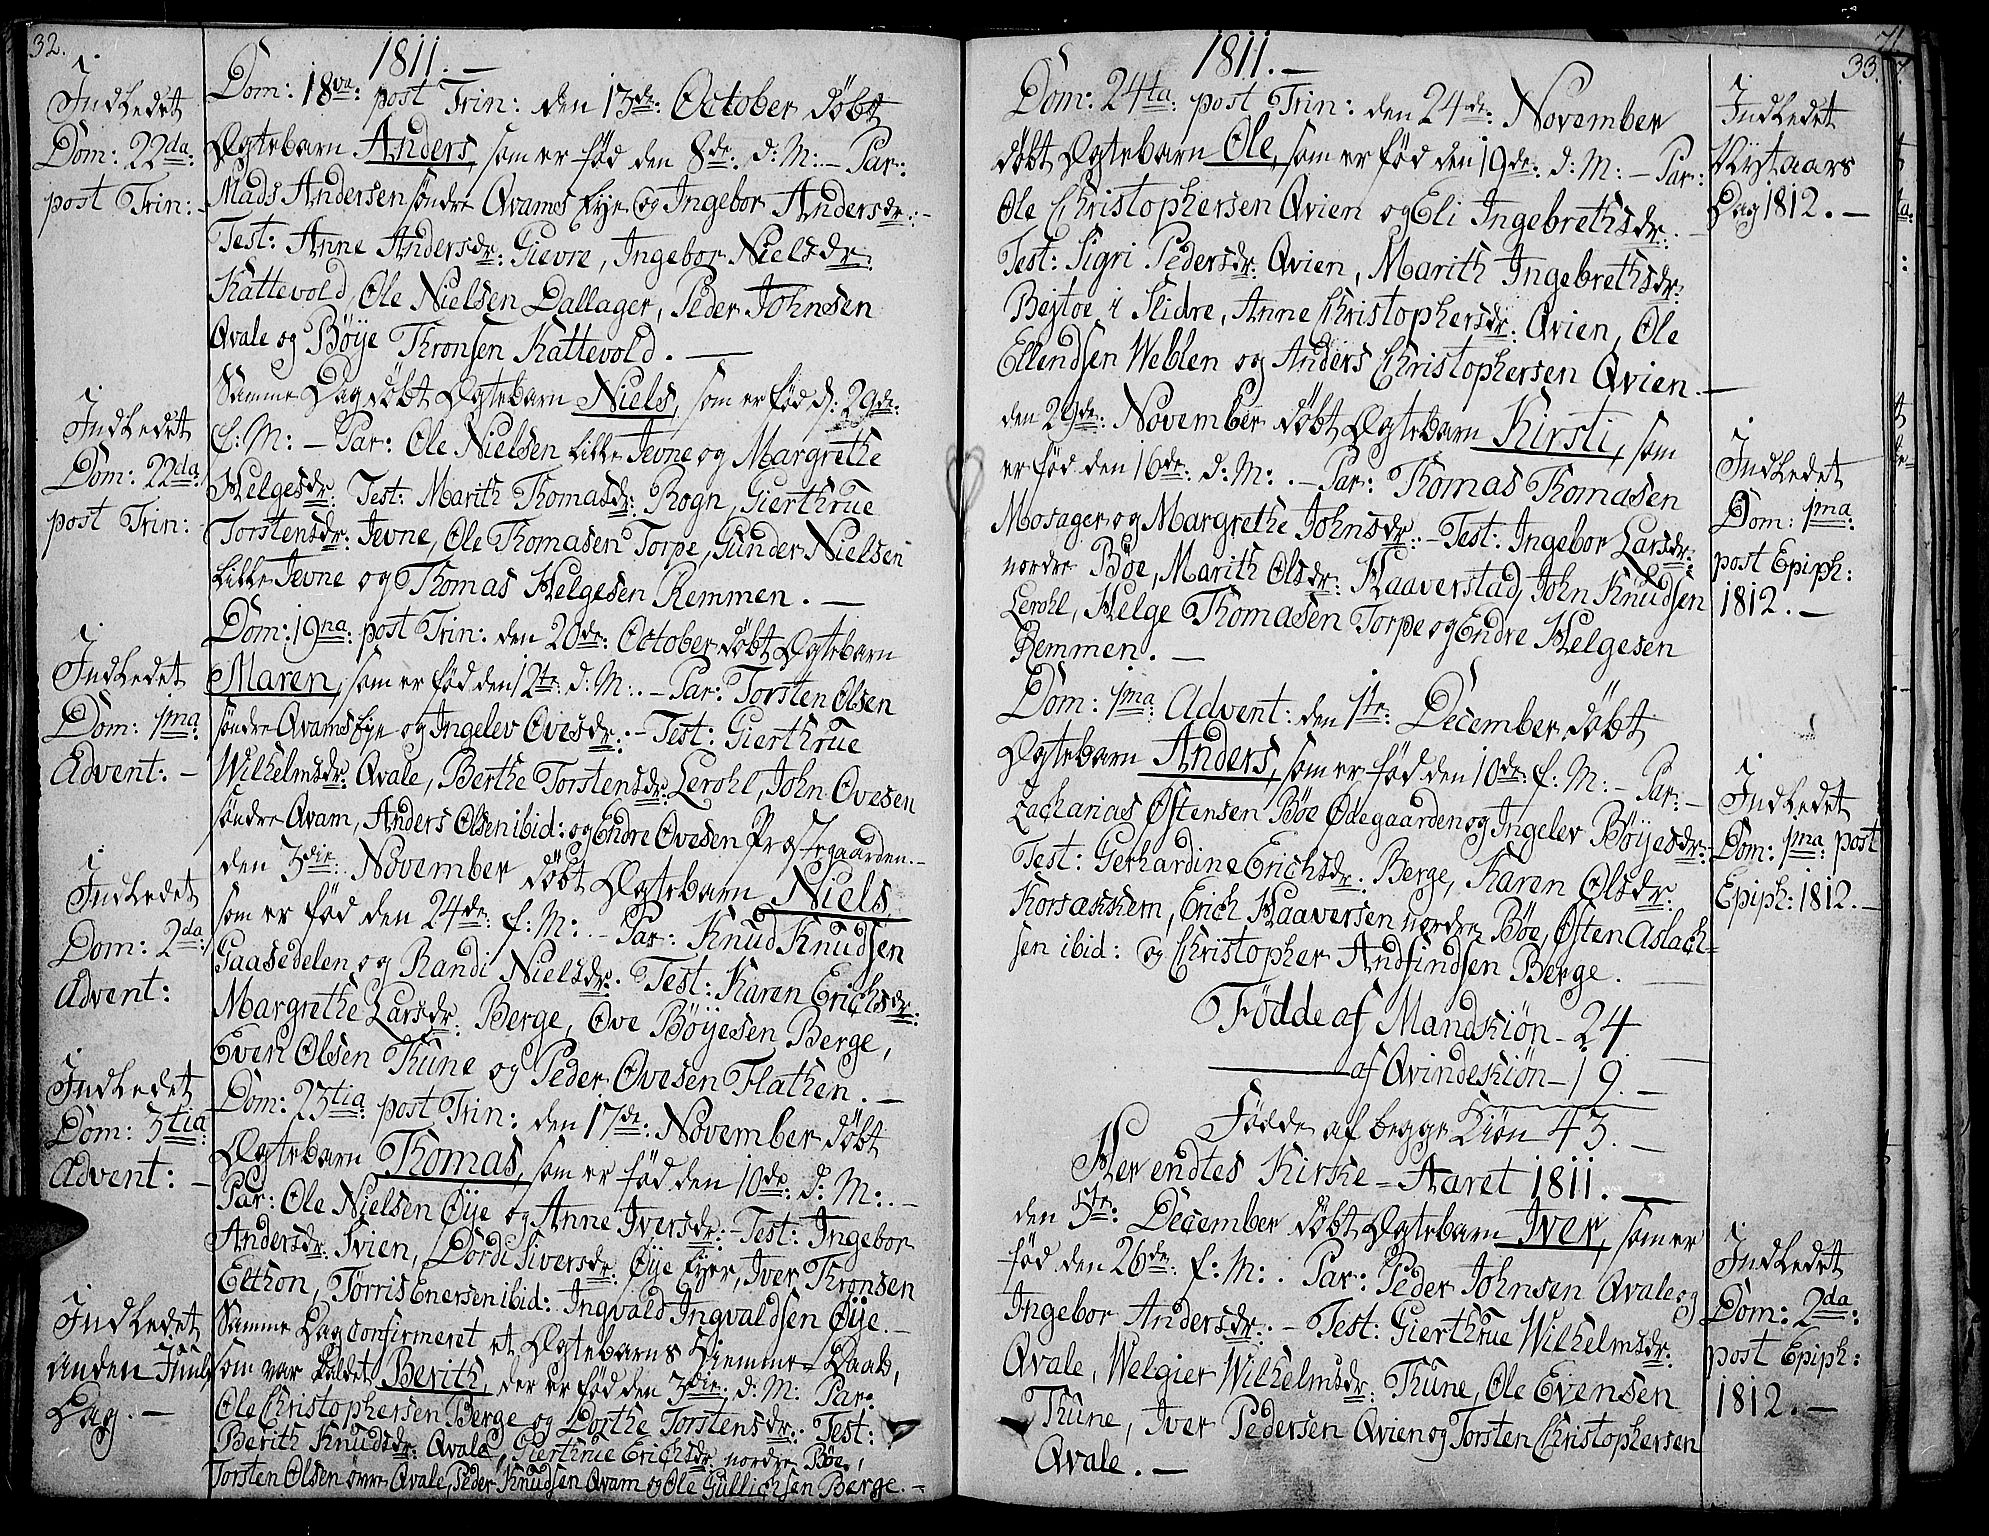 32.
1811. —
Indledet
Dom: 22da:
post Trin: -
Dom: 18va: post Trin: den 13de: October døbt
Ægtebarn Anders, som er fød den 8de: d: M: - Par:
Mads Andersen søndre Qvams Eye og Ingebor Andersdr: -
Test: Anne Andersdr: Gievre, Ingebor Nielsdr:
Kattevold, Ole Nielsen Dallager, Peder Johnsen
Qvale og Böye Thronsen Kattevold. —
Indledet
Dom: 22da
post Trin:
Samme Dag døbt Ægtebarn Niels, som er fød d: 29de:
f: M: - Par: Ole Nielsen Lille Jevne og Margrethe
Helgesdr: Test: Marith Thomasdr: Rogn, Gierthrue
Torstensdr: Jevne, Ole Thomasen Torpe, Gunder Nielsen
Lille Jevne og Thomas Helgesen Remmen. —
Indledet
Dom: 1ma
Advent: -
Dom: 19na: post Trin: den 20de: October døbt Ægtebarn
Maren, som er fød den 12te: d: M: . - Par: Torsten Olsen
søndre Qvams Eye og Ingelev Ovesdr: - Test: Gierthrue
Wilhelmsdr: Qvale, Berthe Torstensdr: Lerohl, John Ovesen
søndre Qvam, Anders Olsen ibid: og Endre Ovesen Præstegaarden. -
Indledet
Dom: 2da:
Advent:
den 3die: November døbt Ægtebarn Niels,
som er fød den 24de: f: M: . - Par: Knud Knudsen
Gaasedelen og Randi Nielsdr: Test: Karen Erichsdr:
Margrethe Larsdr: Berge, Ove Böyesen Berge,
Even Olsen Thune og Peder Ovesen Flathen. —
Indledet
Dom: 3tia:
Advent: -
Dom: 23tia: post Trin: den 17de: November døbt
Ægtebarn Thomas, som er fød den 10de: d: M: . -
Par: Ole Nielsen Øye og Anne Iversdr: - Test: Ingebor
Andersdr: Svien, Dordi Siversdr: Øye Eyer, Iver Thronsen
Elthon, Tørris Enersen ibid: Ingvald Ingvaldsen Øye. -
Indledet
anden Juule
Dag. —
Samme Dag confirmeret et Ægtebarns Hiemme-Daab,
som var kaldet Berith, der er fød den 3die: d: M: Par:
Ole Christophersen Berge og Dorthe Torstensdr: Test:
Berith Knudsdr: Qvale, Gierthrue Erichsdr: nordre Böe,
Torsten Olsen Qvale, Peder Knudsen Qvam og Ole Gullichsen Berge. -
71.
33.
1811. —
Dom: 24ta: post Trin: den 24de: November
døbt Ægtebarn Ole, som er fød den 19de: d: M: - Par:
Ole Christophersen Qvien og Eli Ingebrethsdr:
Test: Sigri Pedersdr: Qvien, Marith Ingebrethsdr:
Bejtoe i Slidre, Anne Christophersdr: Qvien, Ole
Ellendsen Weblen og Anders Christophersen Qvien. —
Indledet
Nytaars
Dag 1812. —
den 29de: November døbt Ægtebarn Kirsti, som
er fød den 16de: d: M: . - Par: Thomas Thomasen
Mosager og Margrethe Johnsdr: - Test: Ingebor Larsdr:
nordre Böe, Marith Olsdr: Haaverstad, John Knudsen
Lerohl, Helge Thomasen Torpe og Endre Helgesen
Remmen. —
Indledet
Dom: 1ma:
post Epiph:
1812. —
Dom: 1ma: Advent: den 1te: December døbt
Ægtebarn Anders, som er fød den 10de: f: M: - Par: -
Zacharias Østensen Böe Ødegaarden og Ingelev Böyesdr: -
Test: Gerhardine Erichsdr: Berge, Karen Olsdr:
Korsakhem, Erich Haaversen nordre Böe, Østen Aslach=
sen ibid: og Christopher Andfindsen Berge. —
Indledet
Dom: 1ma: post
Epiph: 1812. —
Fødde af Mandkiøn - 24
— af Qvindekiøn - 19. —
Fødde af begge Kiøn 43. —
Her endtes Kirke-Aaret 1811. —
den 5te: December døbt Ægtebarn Iver, som er
fød den 26de: f: M: . Par: Peder Johnsen Qvale og
Ingebor Andersdr: - Test: Gierthrue Wilhelmsdr:
Qvale, Welgier Wilhelmsdr: Thune, Ole Evensen
Thune, Iver Pedersen Qvien og Torsten Christophersen
Qvale. —
Indledet
Dom: 2da:
post Epiph:
1812. —